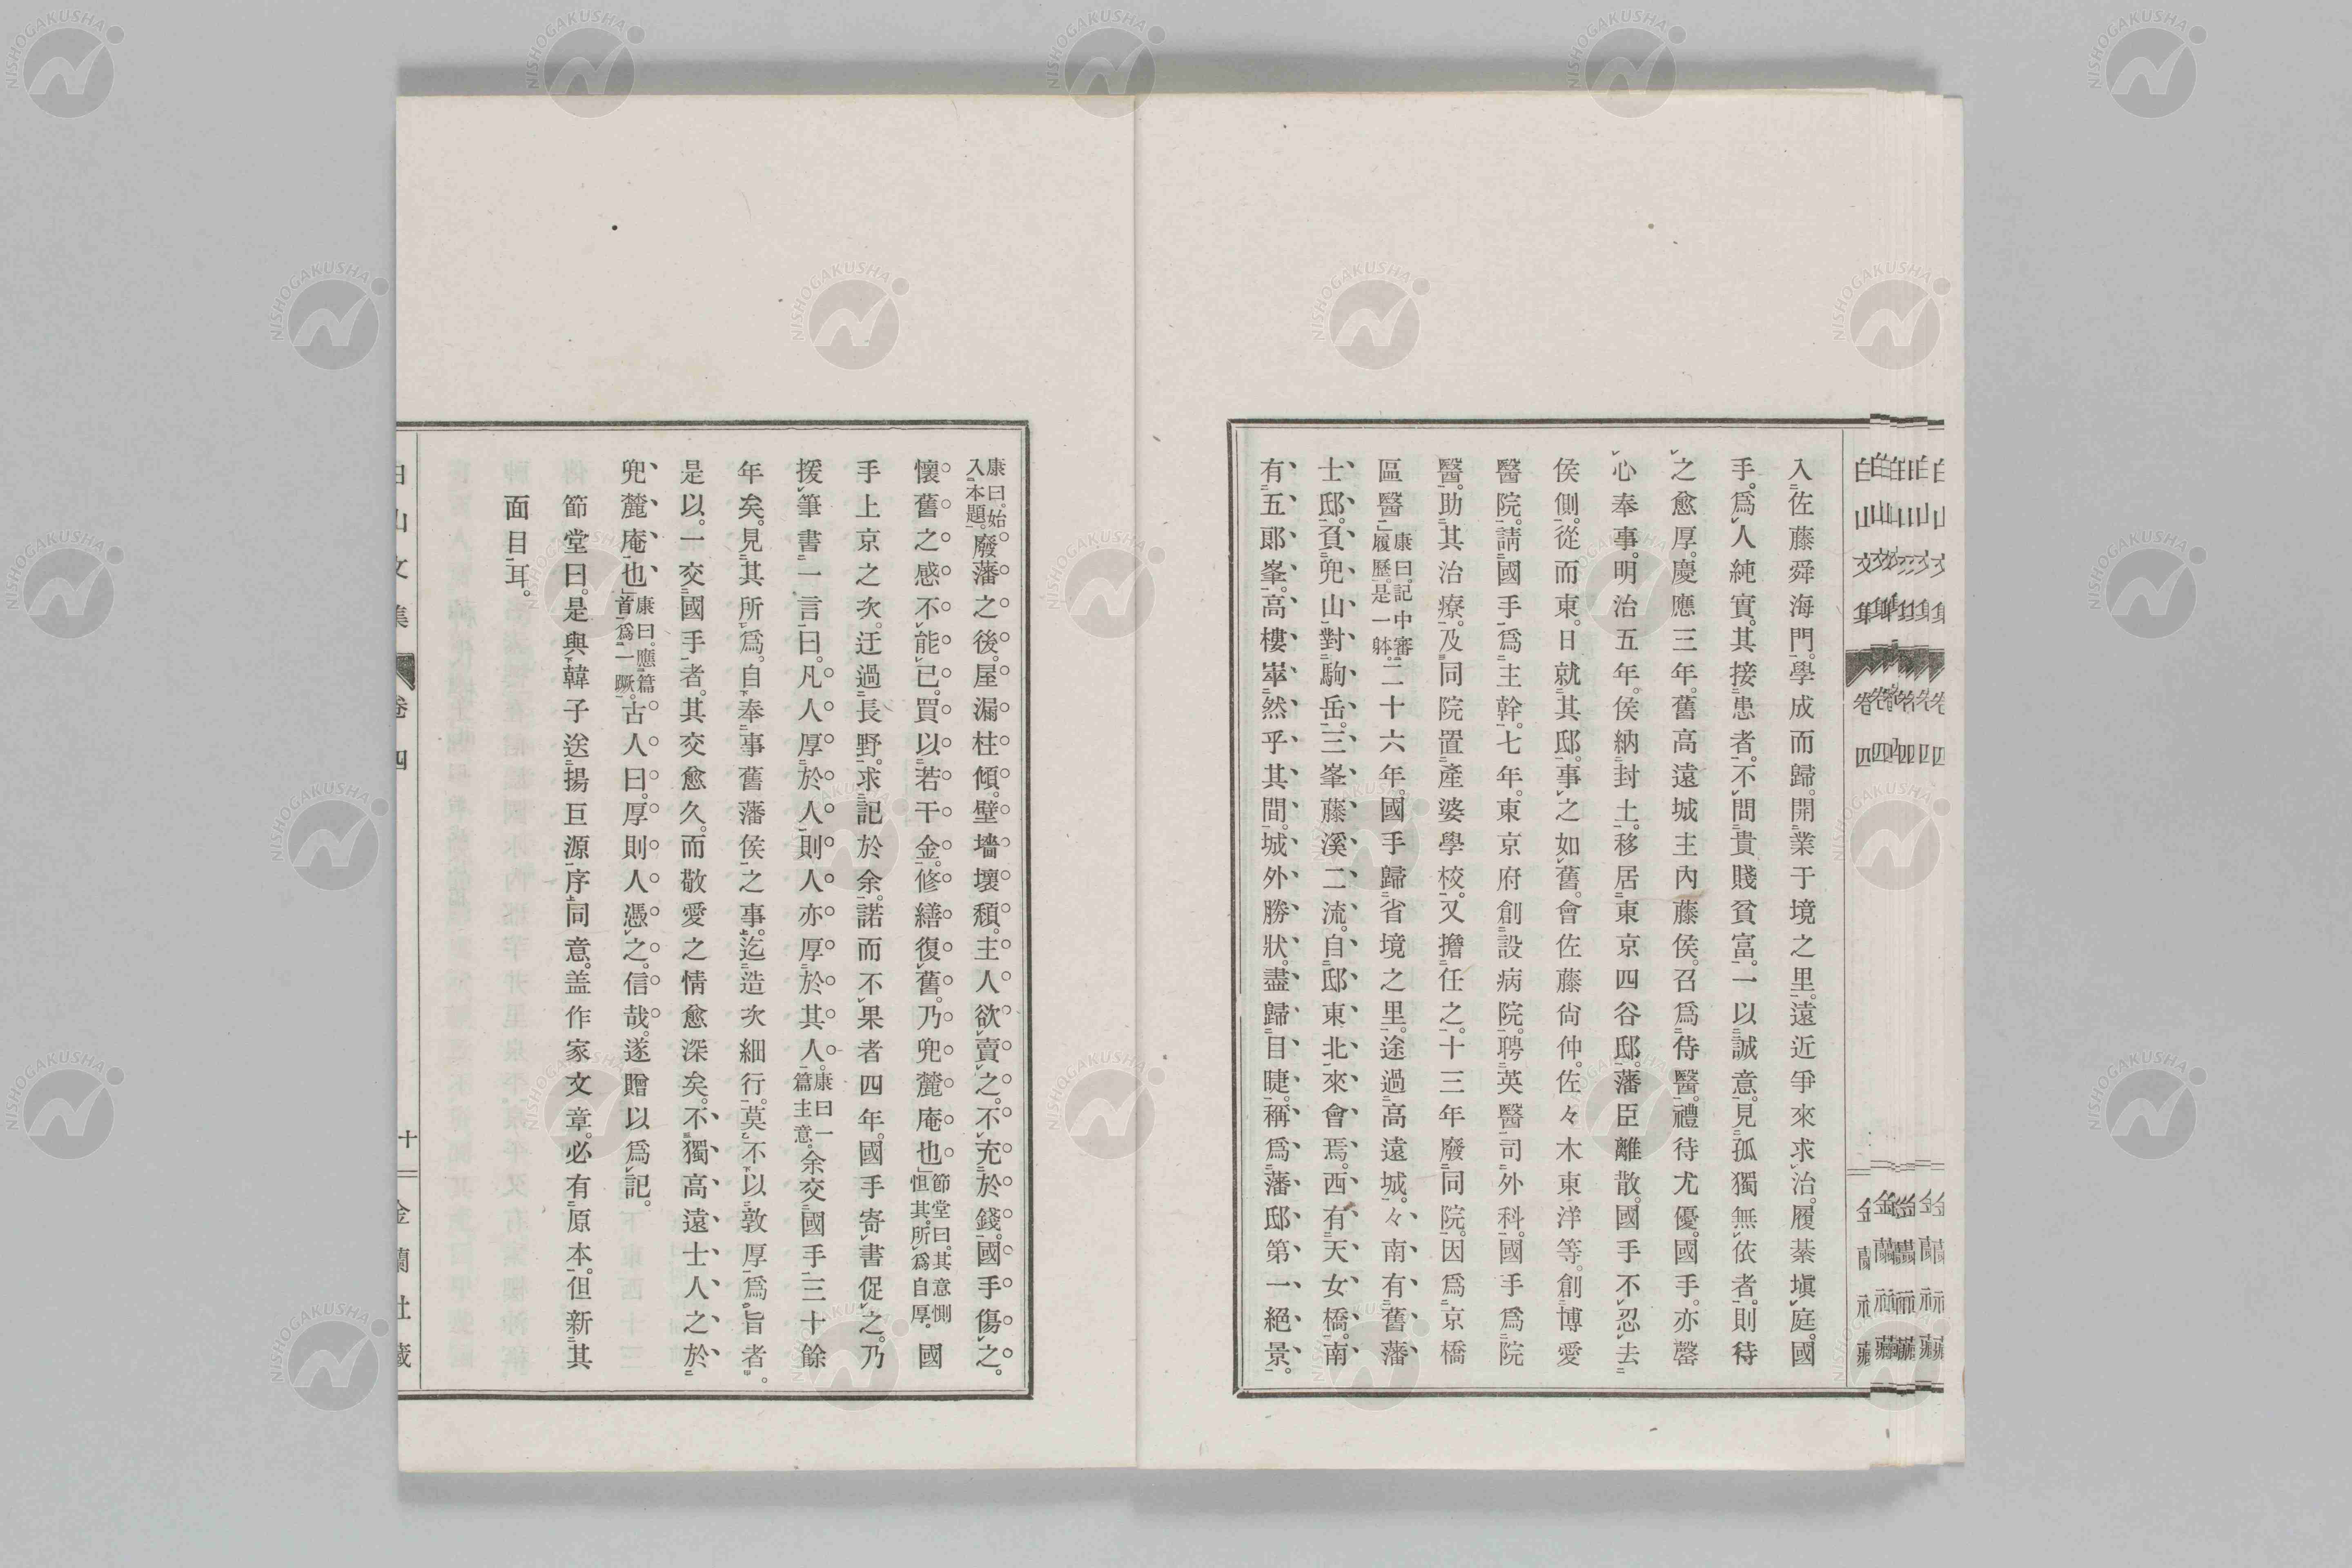 入佐藤舜海門。學成而歸。開業于境之里。遠近爭來求治。履綦塡庭。國
手。爲人純實。其接患者。不問貴賤貧富。一以誠意。見孤獨無依者。則待
之愈厚。慶應三年。舊高遠城主內藤侯。召爲侍醫。禮待尤優。國手。亦罄
心奉事。明治五年。侯納封土。移居東京四谷邸。藩臣離散。國手不忍去
侯側。從而東。日就其邸。事之如舊。會佐藤尙仲。佐々木東洋等。創博愛
醫院。請國手爲主幹。七年。東京府創設病院。聘英醫司外科。國手爲院
醫。助其治療。及同院置產婆學校。又擔任之。十三年廢同院。因爲京橋
區醫」康曰。記中審履歷。是一躰。二十六年。國手歸省境之里。途過高遠城。々南有舊藩
士邸。負兜山。對駒岳。三峯藤溪二流。自邸東北來會焉。西有天女橋。南
有五郎峯。高樓崒然乎其間。城外勝狀。盡歸目睫。稱爲藩邸第一絕景。
康曰。始入本題。廢藩之後。屋漏柱傾。壁墻壞頹。主人欲賣之。不充於錢。國手傷之。
懷舊之感不能已。買以若干金。修繕復舊。乃兜麓庵也」節堂曰。其意惻怛其。所爲自厚。國
手上京之次。迂過長野。求記於余。諾而不果者四年。國手寄書促之。乃
援筆書一言曰。凡人厚於人。則人亦厚於其人。康曰一篇主意。余交國手三十餘
年矣。見其所爲。自奉事舊藩侯之事。迄造次細行。莫不以敦厚爲旨者。
是以。一交國手者。其交愈久。而敬愛之情愈深矣。不獨高遠士人之於
兜麓庵也」康曰。應篇首爲一蹶。古人曰。厚則人憑之。信哉。遂贈以爲記。
節堂曰。是與韓子送揚巨源序同意。盖作家文章。必有原本。但新其
面目耳。
白山文集
卷四
十
金蘭社藏
白山文集
卷四
金蘭社藏
NISHOGAKUSHA